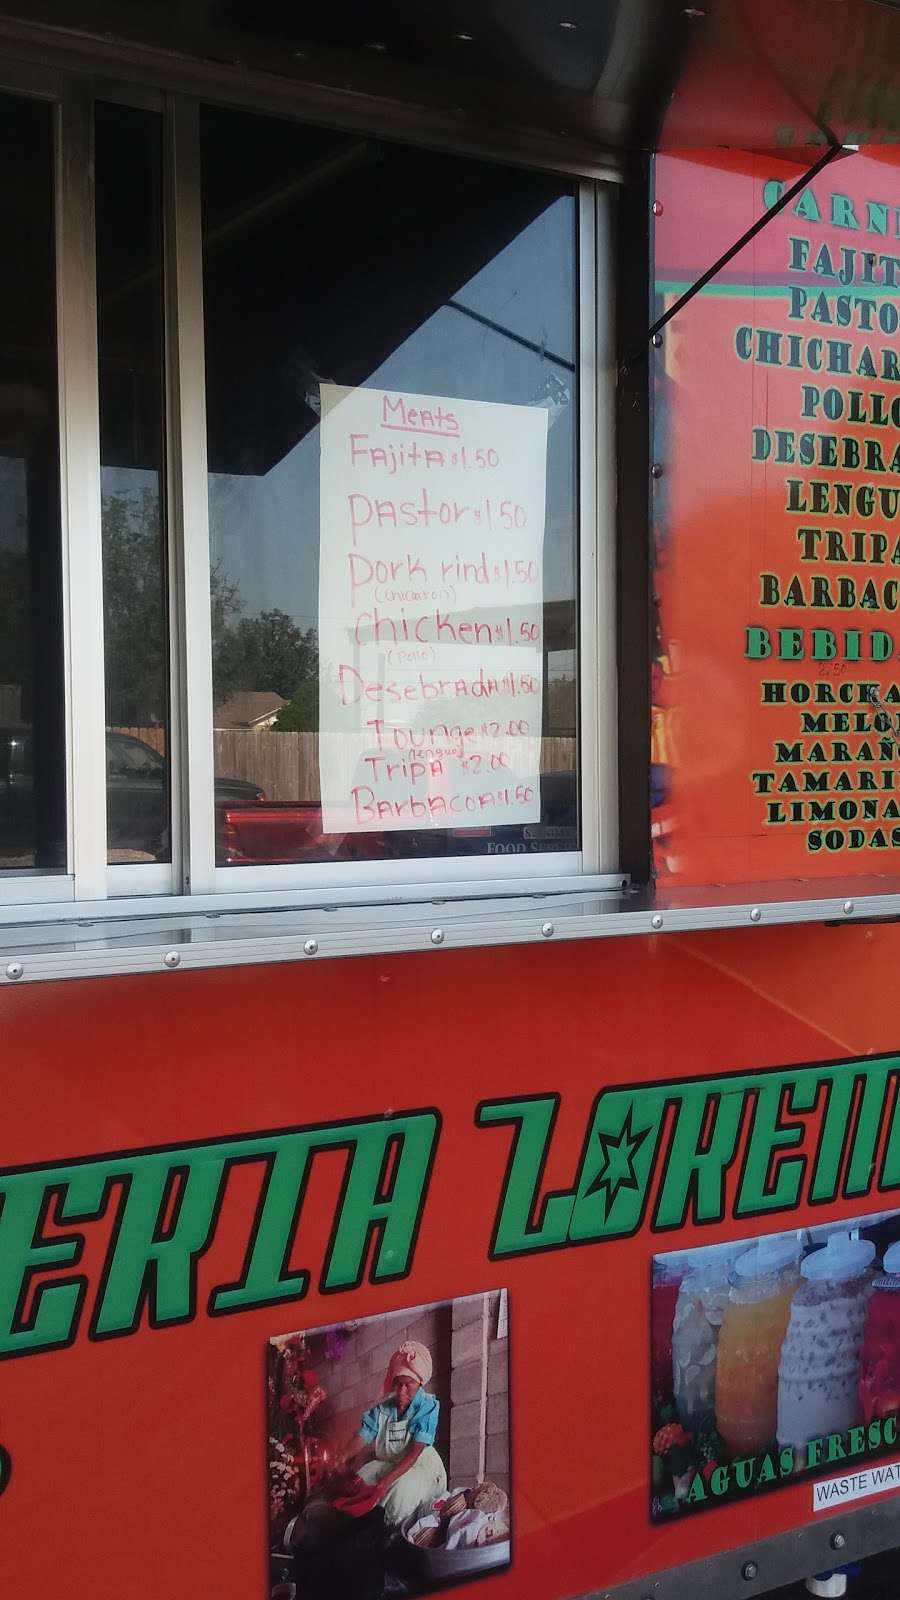 Meats
Fajita $1.50
Pastor $1.50
Pork rind $1.50
(Chicharon)
Chicken $1.50
(Pollo)
Desebrada $1.50
Tounge $2.00
(lengua)
Tripa $2.00
Barbacoa $1.50
FOOD SERV
CARN
FAJIT
PASTO
CHICHAR
POLLO
DESEBRA
LENGU
TRIPA
BARBAC
BEBID
2.50
HORCHA
MELO
MARAÑ
TAMARI
LIMONA
SODAS
ERIA LOREN
AGUAS FRESC
WASTE WAT